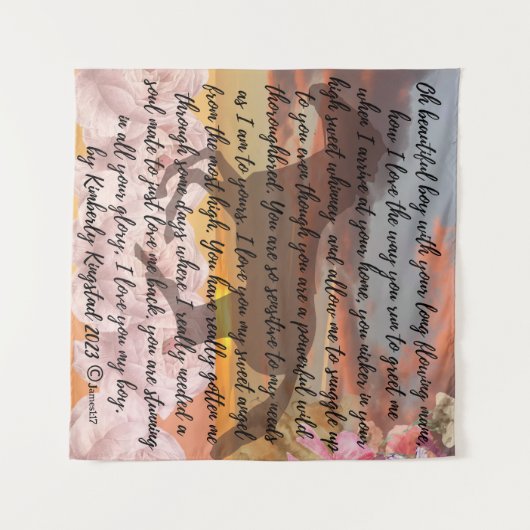 Oh beautiful boy with your long flowing mane,
how I love the way you run to greet me
when I arrive at your home, you nicker in your
high sweet whinney and allow me to snuggle up
to you even though you are a powerful wild
thoroughbred. You are so sensitive to my needs
as I am to yours. I love you my sweet angel
from the most high. You have really gotten me
through some days where I really needed a
soul mate to just love me back, you are stunning
in all your glory. I love you my boy.
by Kimberly Kingstad 2023 ©James1:17